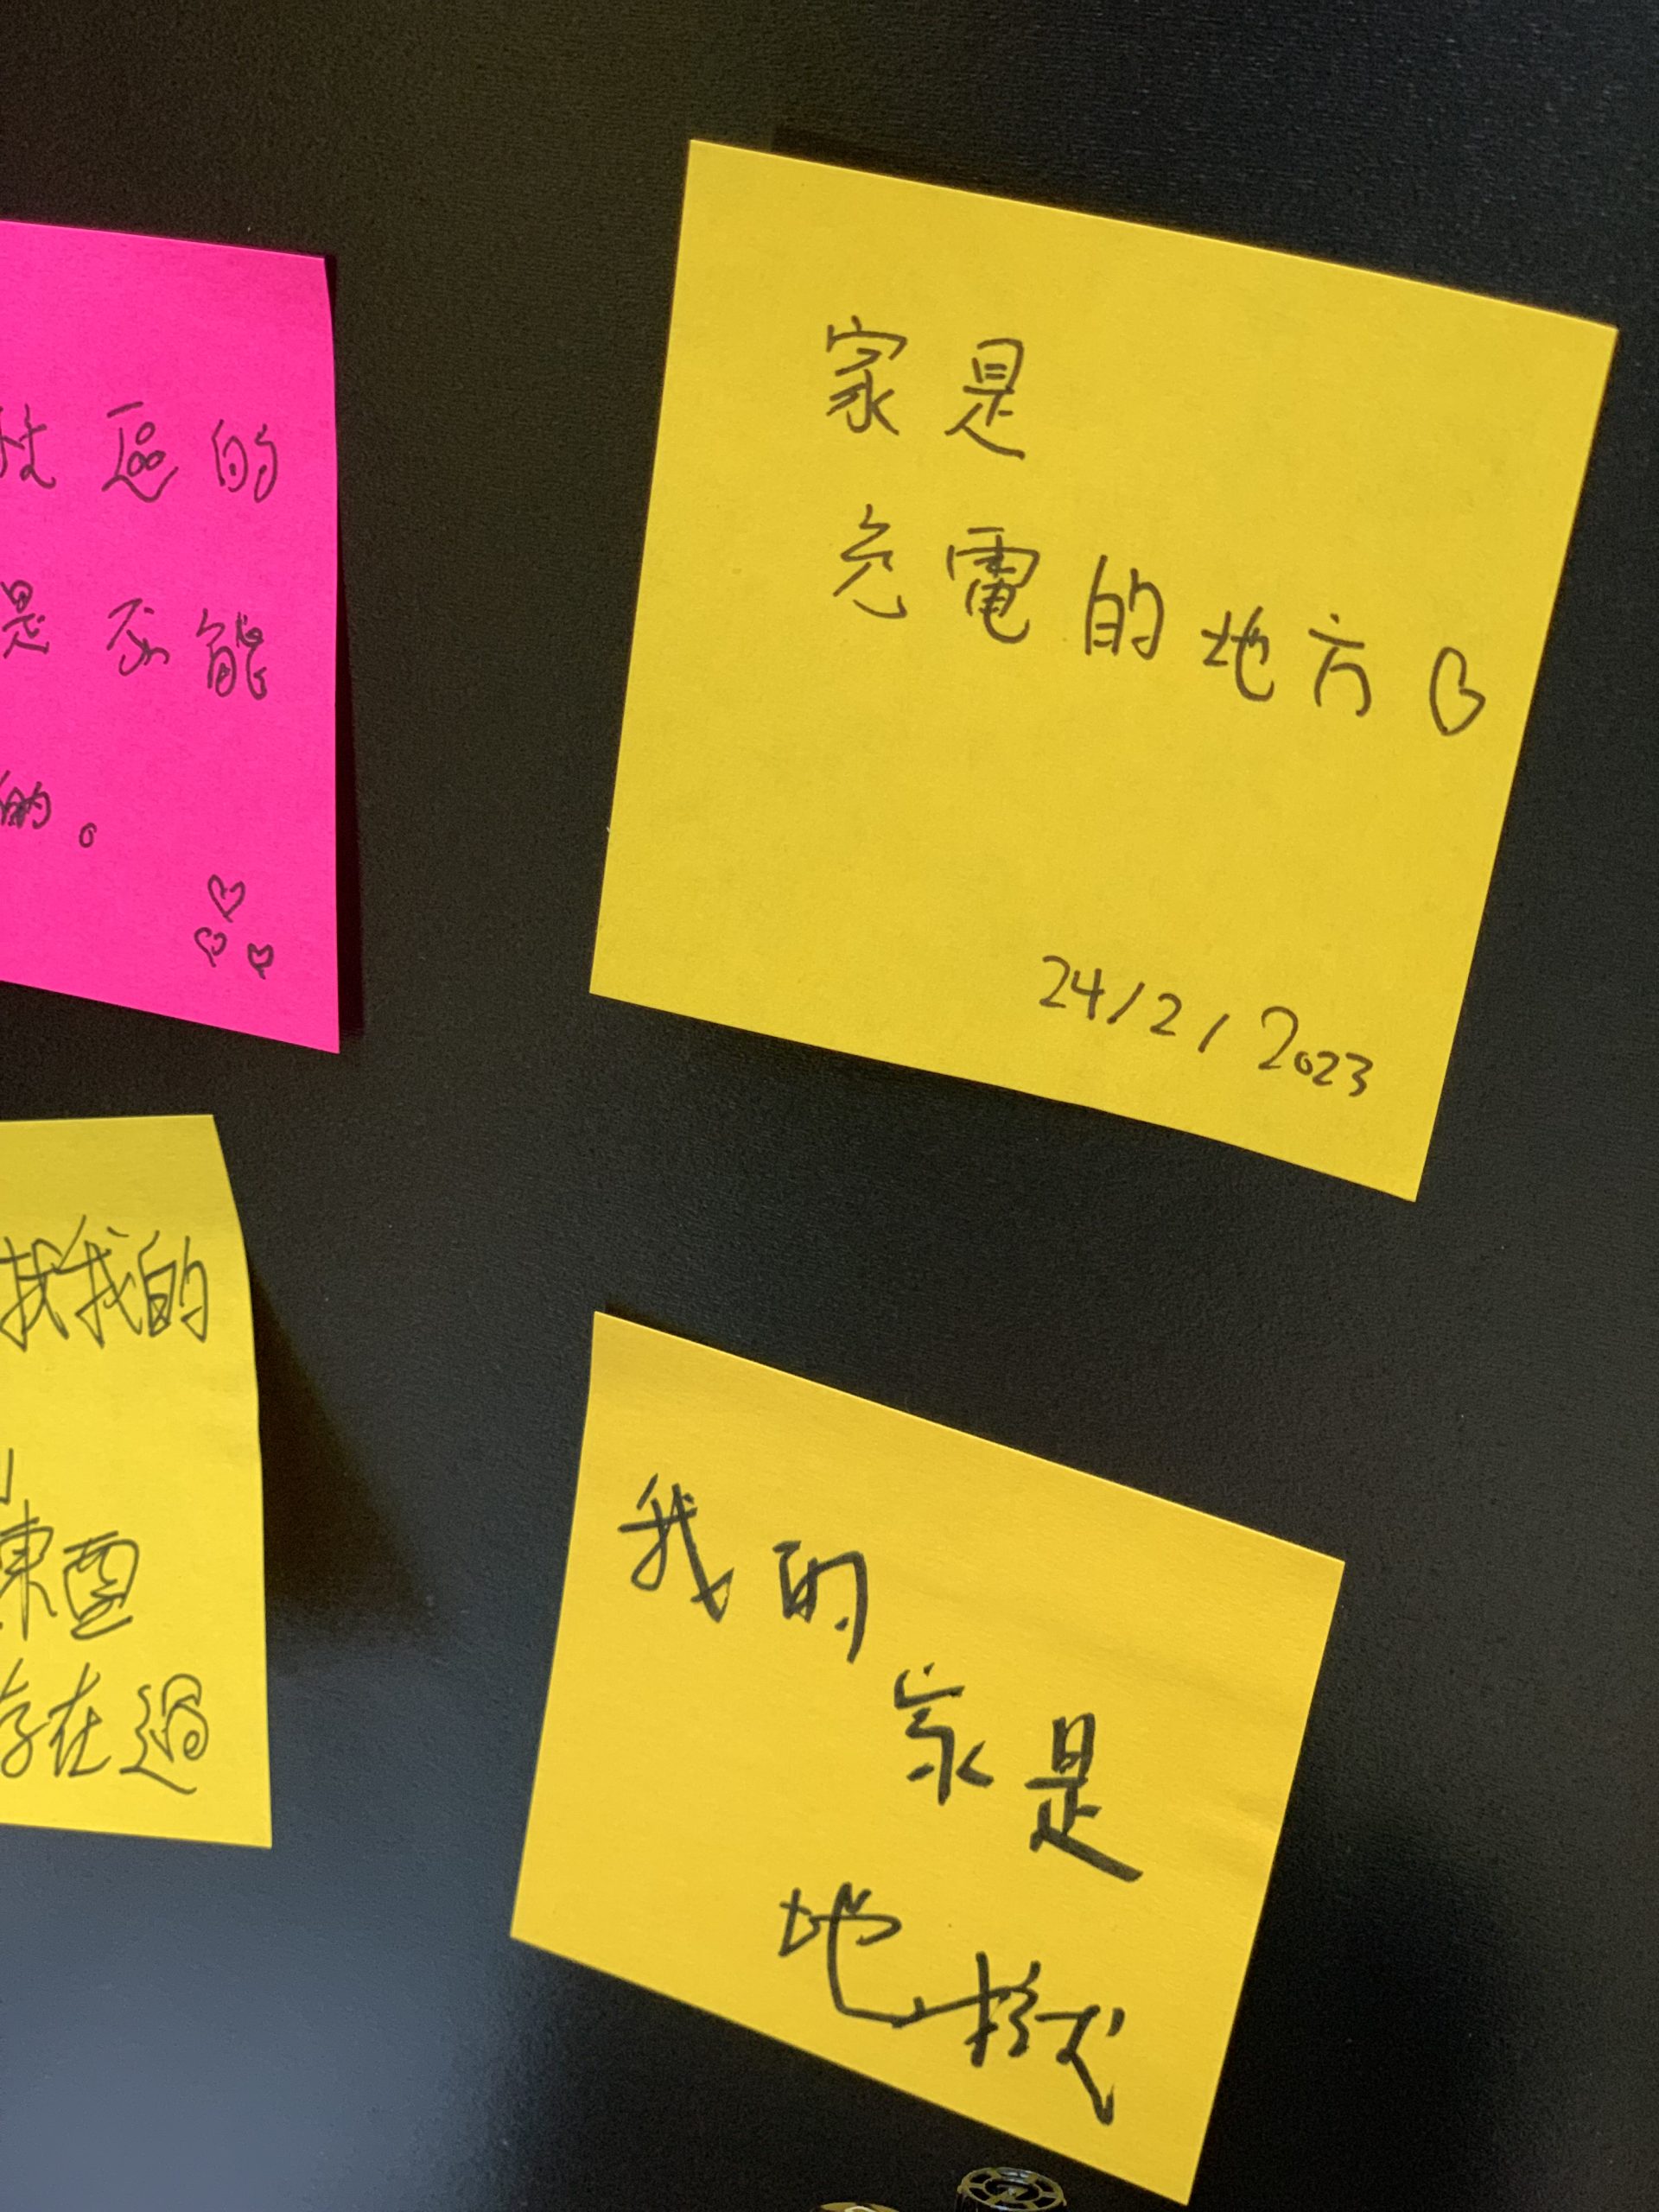 社區的
是不能
的。
家是
充電的地方
24/2/2023
找我的
東西
存在過
我的
家是
地